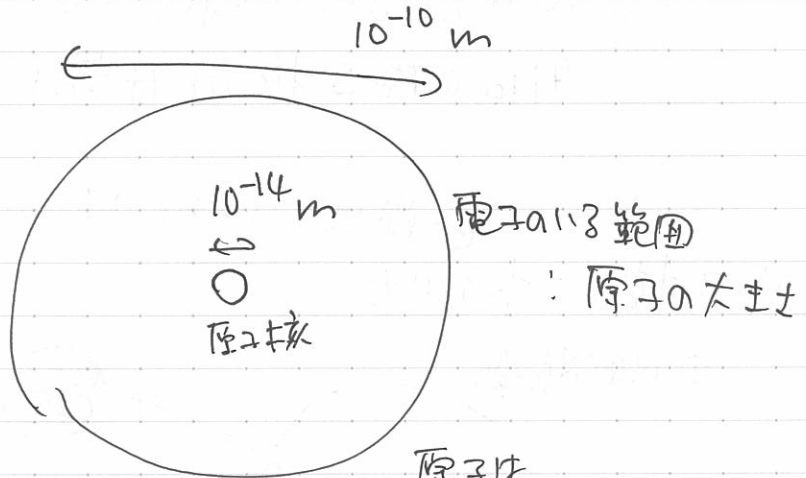 10⁻¹⁰ m
10⁻¹⁴ m
原子核
電子のいる範囲
: 原子の大きさ
原子は